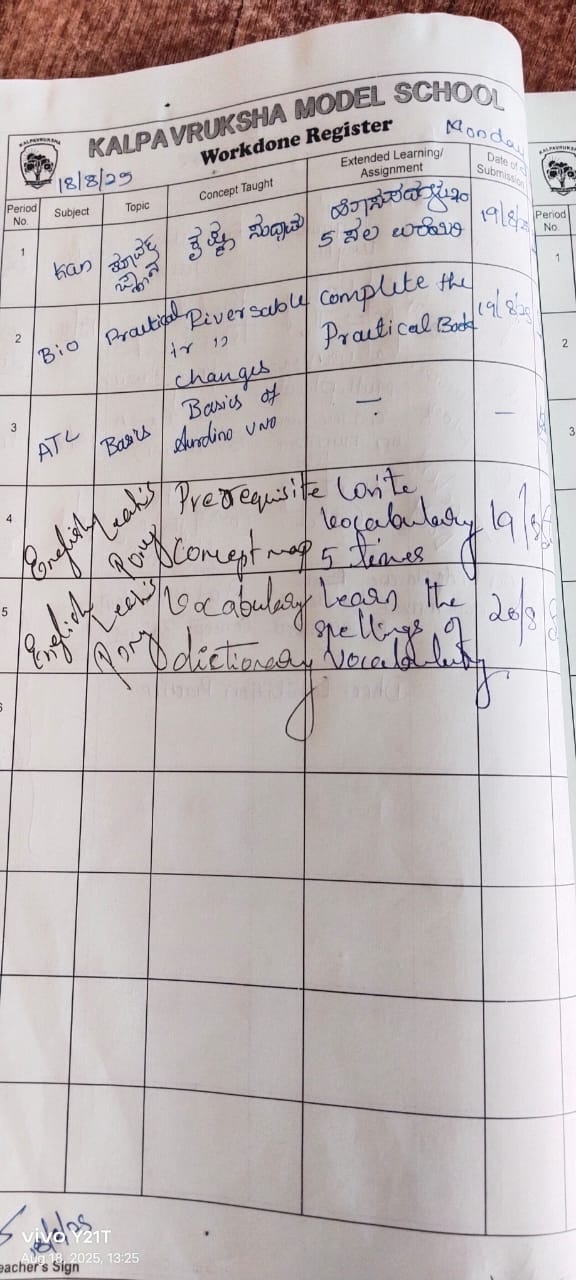 KALPAVRUKSHA MODEL SCHOOL
Workdone Register
Monday
18/8/25
Period No.
Subject
Topic
Concept Taught
Extended Learning/ Assignment
Date of Submission
1
Kan
19/8/25
2
Bio
Practical
Riversable
Irr "
changes
complete the
Practical Book
19/8/25
3
ATL
Basics
Basics of
Aurdino UNO
—
—
4
English
Leah's
Pony
Prerequisite
Concept map
Write
Vocabulary
5 times
19/8
5
English
Leah's
Pony
Vocabulary
dictionary
Learn the
spellings of
vocabulary
20/8
6
18/8/25
vivo Y21T
Aug 18, 2025, 13:25
eacher's Sign
KALPAVRUKSHA
Period
No.
1
2
3